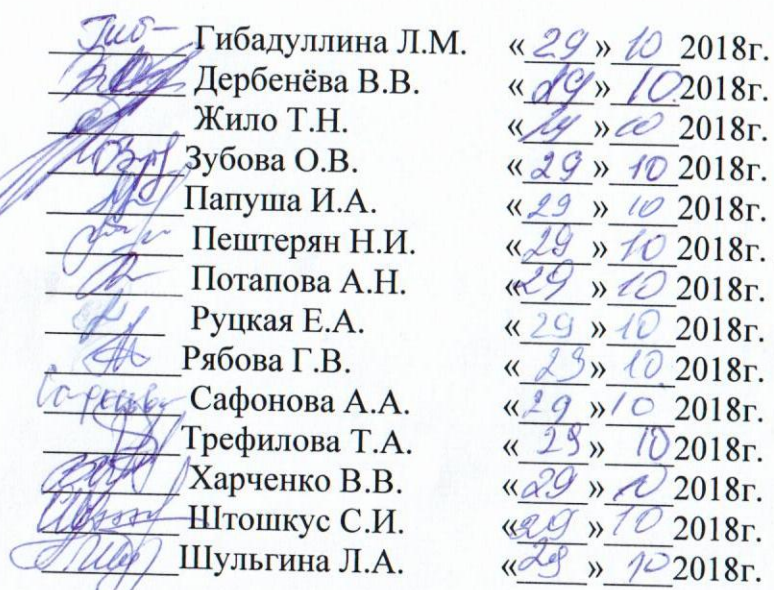 Гибадуллина Л.М. «29» 10 2018г.
Дербенёва В.В. «29» 10 2018г.
Жило Т.Н. «29» 10 2018г.
Зубова О.В. «29» 10 2018г.
Папуша И.А. «29» 10 2018г.
Пештерян Н.И. «29» 10 2018г.
Потапова А.Н. «29» 10 2018г.
Руцкая Е.А. «29» 10 2018г.
Рябова Г.В. «29» 10 2018г.
Сафонова А.А. «29» 10 2018г.
Трефилова Т.А. «29» 10 2018г.
Харченко В.В. «29» 10 2018г.
Штошкус С.И. «29» 10 2018г.
Шульгина Л.А. «29» 10 2018г.